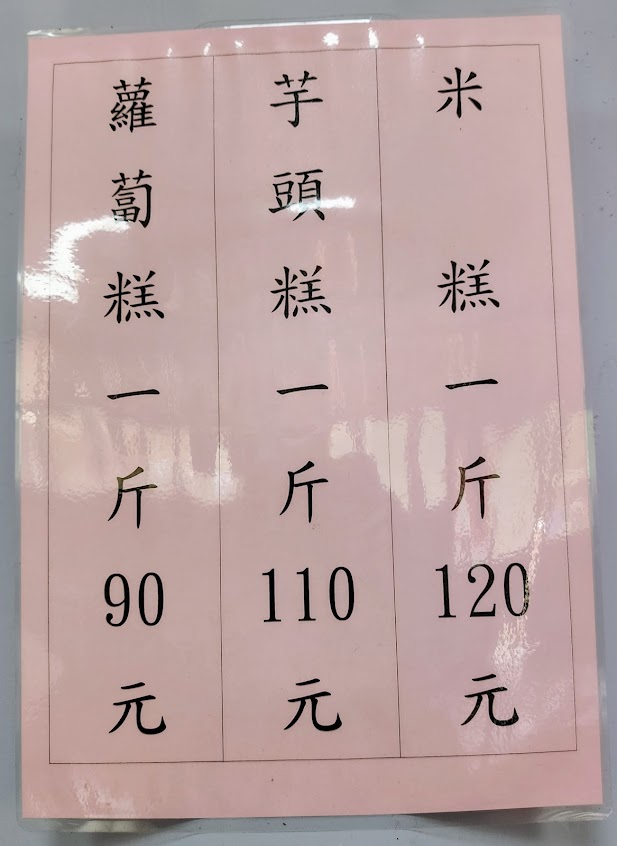 米糕一斤120元
芋頭糕一斤110元
蘿蔔糕一斤90元